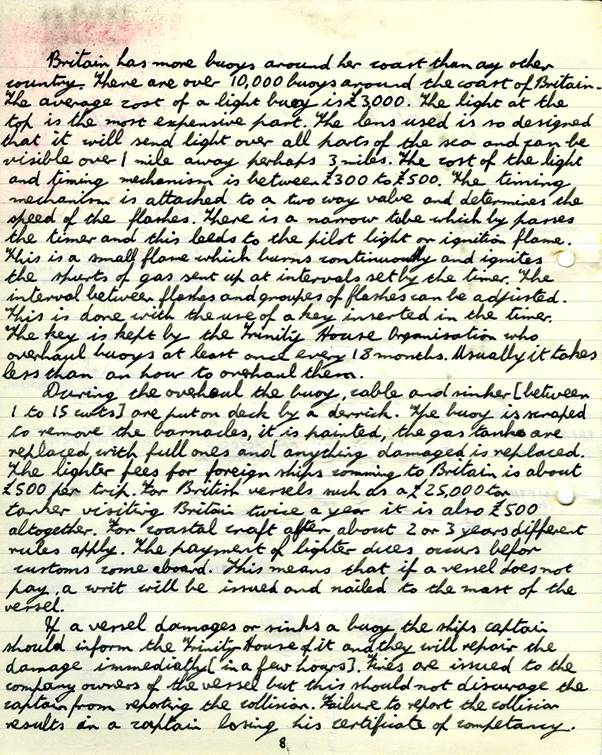 Britain has more buoys around her coast than ay other
country. There are over 10,000 buoys around the coast of Britain.
The average cost of a light buoy is £3000. The light at the
top is the most expensive part. The lens used is so designed
that it will send light over all parts of the sea and can be
visible over 1 mile away perhaps 3 miles. The cost of the light
and timing mechanism is between £300 to £500. The timing
mechanism is attached to a two way valve and determines the
speed of the flashes. There is a narrow tube which by passes
the timer and this leeds to the pilot light or ignition flame.
This is a small flame which burns continuously and ignites
the spurts of gas sent up at intervals set by the timer. The
interval between flashes and groupes of flashes can be adjusted.
This is done with the use of a key inserted in the timer.
The key is kept by the Trinity House Organisation who
overhaul buoys at least once every 18 months. Usually it takes
less than an hour to overhaul them.
During the overheul the buoy, cable and sinker [between
1 to 15 cwts] are put on deck by a derrick. The buoy is scraped
to remove the barnacles, it is painted, the gas tanks are
replaced with full ones and anything damaged is replaced.
The lighter fees for foreign ships comming to Britain is about
£500 per trip. For British versels such as a £25,000 ton
tanker visiting Britain twice a year it is also £500
altogether. For coastal craft after about 2 or 3 years different
rules apply. The payment of lighter dues occurs befor
customs come aboard. This means that if a versel does not
pay, a writ will be issued and nailed to the mast of the
versel.
If a vessel damages or sinks a buoy the ships captain
should inform the Trinity House of it and they will repair the
damage immediatly [in a few hours]. Fines are issued to the
company owners of the vessel but this should not discurage the
captain from reporting the collision. Failure to report the collision
results in a captain losing his certificate of competancy.
8